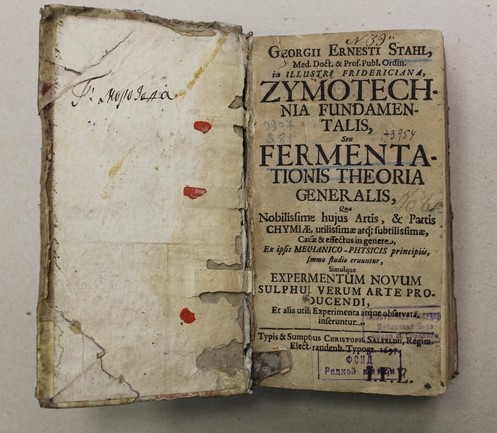 GEORGII ERNESTI STAHL,
Med. Doct. & Prof. Publ. Ordin.
in ILLUSTRI FRIDERICIANA,
ZYMOTECH-
NIA FUNDAMEN-
TALIS,
Seu
73954
FERMENTA-
TIONIS THEORIA
GENERALIS,
Qua
Nobilissimæ hujus Artis, & Partis
CHYMIÆ, utilissimæ atq; subtilissimæ,
Causæ & effectus in genere,
Ex ipsis MECHANICO-PHYSICIS principiis,
summo studio eruuntur,
Simulque
EXPERIMENTUM NOVUM
SULPHUR VERUM ARTE PRO-
DUCENDI,
Et alia util. Experimenta atque observata,
inseruntur.
Typis & Sumptibus CHRISTOPH. SALFELDII, Regim.
Elect. randenb. Typogr.
ФОНД
Редкой книги